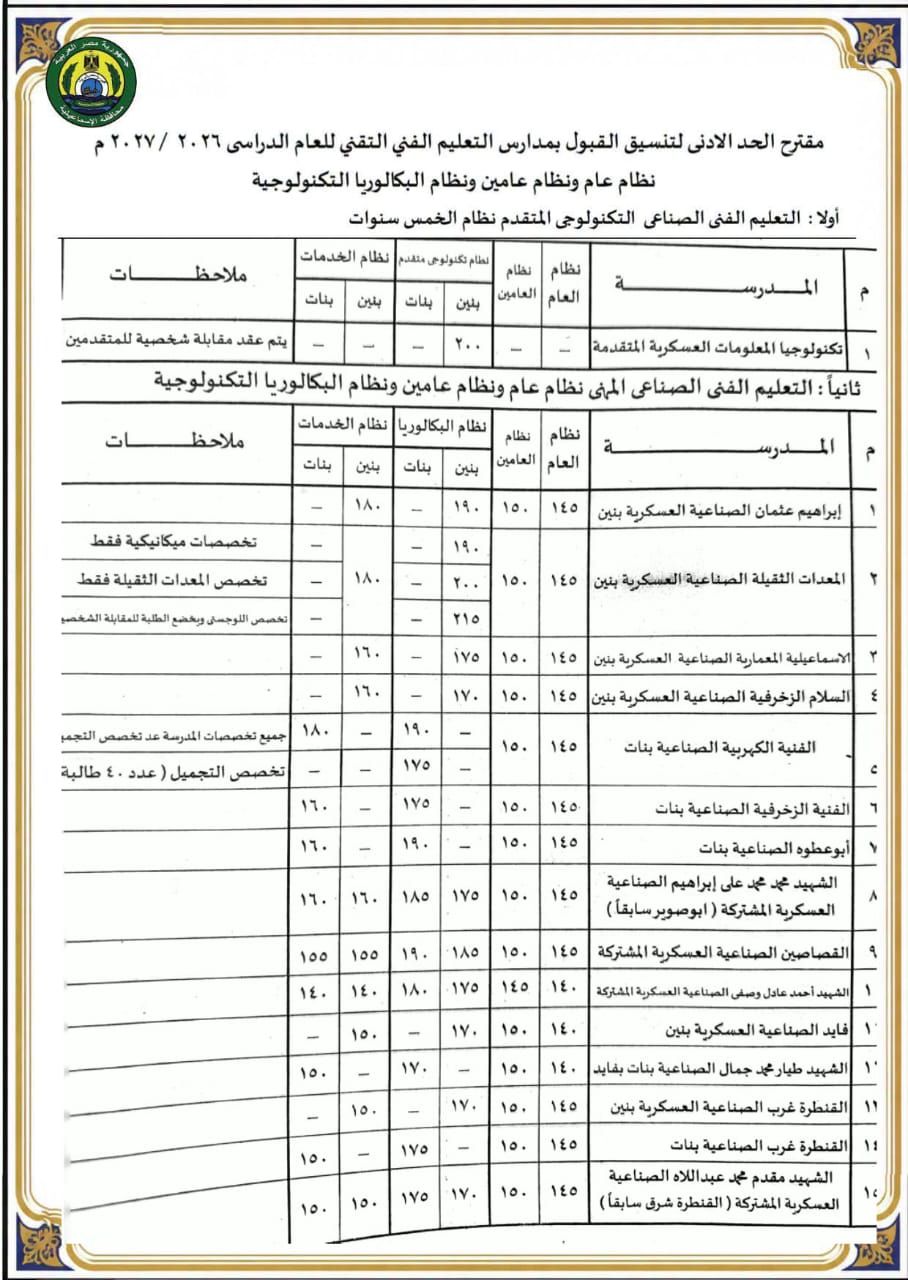 جمهورية مصر العربية
محافظة الإسماعيلية
مقترح الحد الادنى لتنسيق القبول بمدارس التعليم الفني التقني للعام الدراسى ٢٠٢٦ / ٢٠٢٧ م
نظام عام ونظام عامين ونظام البكالوريا التكنولوجية
أولا : التعليم الفنى الصناعى التكنولوجى المتقدم نظام الخمس سنوات
م المدرسة نظام العام نظام العامين نظام تكنولوجى متقدم نظام الخدمات ملاحظات
بنين بنات بنين بنات
١ تكنولوجيا المعلومات العسكرية المتقدمة – – ٢٠٠ – – – يتم عقد مقابلة شخصية للمتقدمين
ثانياً : التعليم الفنى الصناعى المهنى نظام عام ونظام عامين ونظام البكالوريا التكنولوجية
م المدرسة نظام العام نظام العامين نظام البكالوريا نظام الخدمات ملاحظات
بنين بنات بنين بنات
١ إبراهيم عثمان الصناعية العسكرية بنين ١٤٥ ١٥٠ ١٩٠ – ١٨٠ –
١٩٠ – – تخصصات ميكانيكية فقط
٢ المعدات الثقيلة الصناعية العسكرية بنين ١٤٥ ١٥٠ ٢٠٠ – ١٨٠ – تخصص المعدات الثقيلة فقط
٢١٥ – – تخصص اللوجستى ويخضع الطلبة للمقابلة الشخصي
٣ الاسماعيلية المعمارية الصناعية العسكرية بنين ١٤٥ ١٥٠ ١٧٥ – ١٦٠ –
٤ السلام الزخرفية الصناعية العسكرية بنين ١٤٥ ١٥٠ ١٧٠ – ١٦٠ –
٥ الفنية الكهربية الصناعية بنات ١٤٥ ١٥٠ – ١٩٠ – ١٨٠ جميع تخصصات المدرسة عد تخصص التجمي
– ١٧٥ – – تخصص التجميل ( عدد ٤٠ طالبة
٦ الفنية الزخرفية الصناعية بنات ١٤٥ ١٥٠ – ١٧٥ – ١٦٠
٧ أبوعطوه الصناعية بنات ١٤٥ ١٥٠ – ١٩٠ – ١٦٠
٨ الشهيد محمد محمد على إبراهيم الصناعية العسكرية المشتركة ( ابوصوير سابقاً ) ١٤٥ ١٥٠ ١٧٥ ١٨٥ ١٦٠ ١٦٠
٩ القصاصين الصناعية العسكرية المشتركة ١٤٥ ١٥٠ ١٨٥ ١٩٠ ١٥٥ ١٥٥
١ الشهيد أحمد عادل وصفى الصناعية العسكرية المشتركة ١٤٠ ١٤٥ ١٧٥ ١٨٠ ١٤٠ ١٤٠
١ فايد الصناعية العسكرية بنين ١٤٠ ١٥٠ ١٧٠ – ١٥٠ –
١ الشهيد طيار محمد جمال الصناعية بنات بفايد ١٤٠ ١٥٠ – ١٧٠ – ١٥٠
١٣ القنطرة غرب الصناعية العسكرية بنين ١٤٥ ١٥٠ ١٧٠ – ١٥٠ –
١٤ القنطرة غرب الصناعية بنات ١٤٥ ١٥٠ – ١٧٥ – ١٥٠
١٥ الشهيد مقدم محمد عبداللاه الصناعية العسكرية المشتركة ( القنطرة شرق سابقاً ) ١٤٥ ١٥٠ ١٧٠ ١٧٥ ١٥٠ ١٥٠